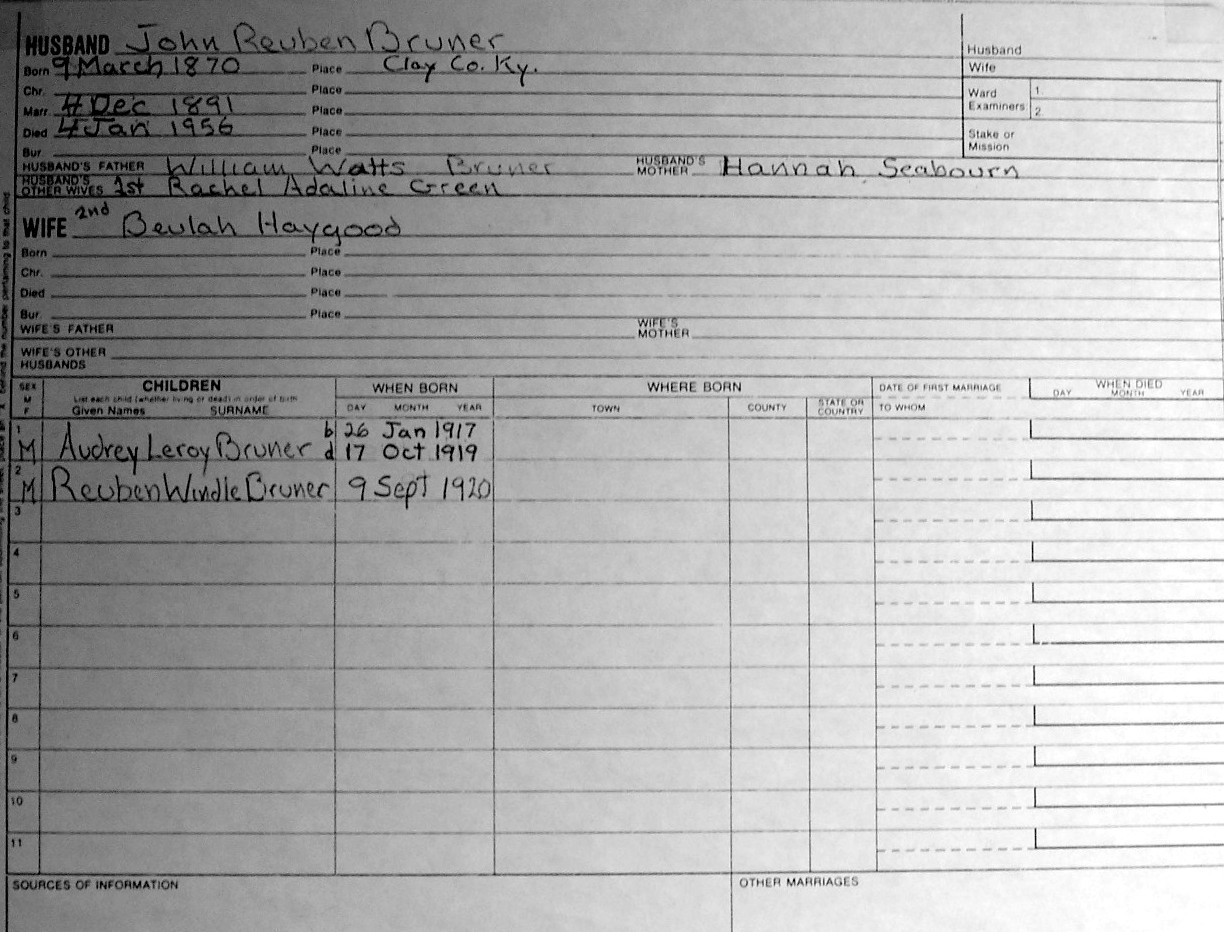 HUSBAND John Reuben Bruner
Husband
Born 9 March 1870 Place Clay Co. Ky.
Wife
Chr. Place
Ward 1.
Marr. 4 Dec 1891 Place
Examiners 2.
Died 4 Jan 1956 Place
Stake or
Mission
Bur. Place
HUSBAND'S FATHER William Watts Bruner HUSBAND'S MOTHER Hannah Seabourn
HUSBAND'S OTHER WIVES 1st Rachel Adaline Green
WIFE 2nd Beulah Haygood
Born Place
Chr. Place
Died Place
Bur. Place
WIFE'S FATHER WIFE'S MOTHER
WIFE'S OTHER
HUSBANDS
SEX M F CHILDREN WHEN BORN WHERE BORN DATE OF FIRST MARRIAGE WHEN DIED
List each child (whether living or dead) in order of birth
Given Names SURNAME DAY MONTH YEAR TOWN COUNTY STATE OR COUNTRY TO WHOM DAY MONTH YEAR
1 b 26 Jan 1917
M Audrey Leroy Bruner d 17 Oct 1919
2
M Reuben Windle Bruner 9 Sept 1920
3
4
5
6
7
8
9
10
11
SOURCES OF INFORMATION OTHER MARRIAGES